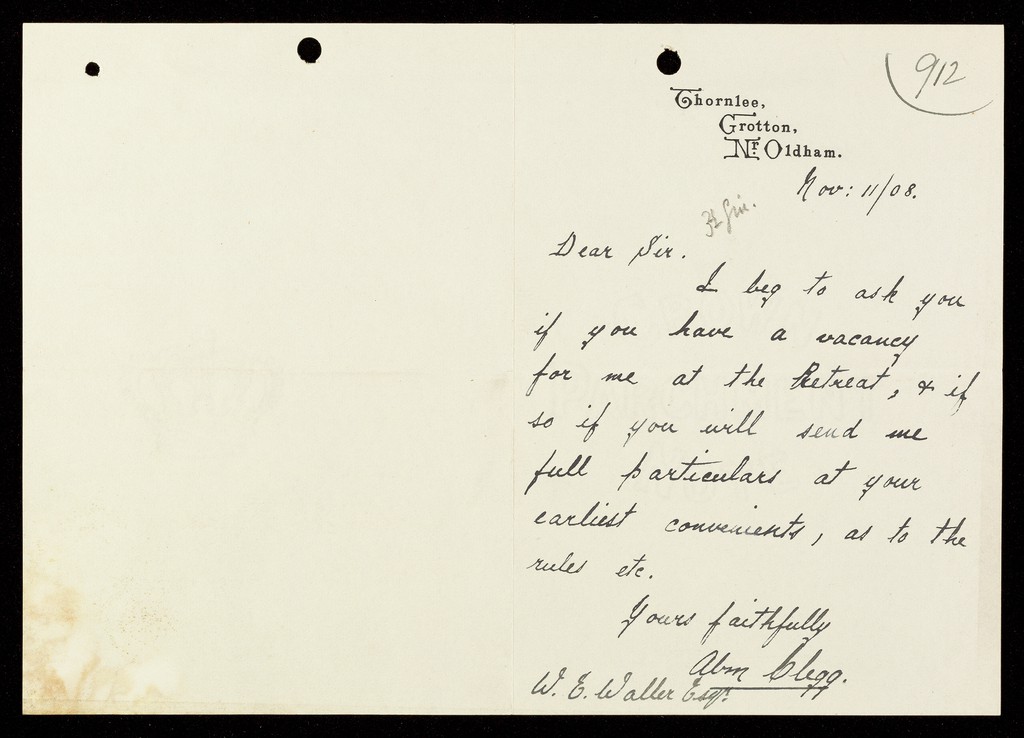 912
Thornlee,
Grotton,
Nr. Oldham.
Nov: 11/08.
Dear Sir.
I beg to ask you
if you have a vacancy
for me at the Retreat, & if
so if you will send me
full particulars at your
earliest convenients, as to the
rules etc.
Yours faithfully
Abm Clegg.
W. E. Waller Esqr.